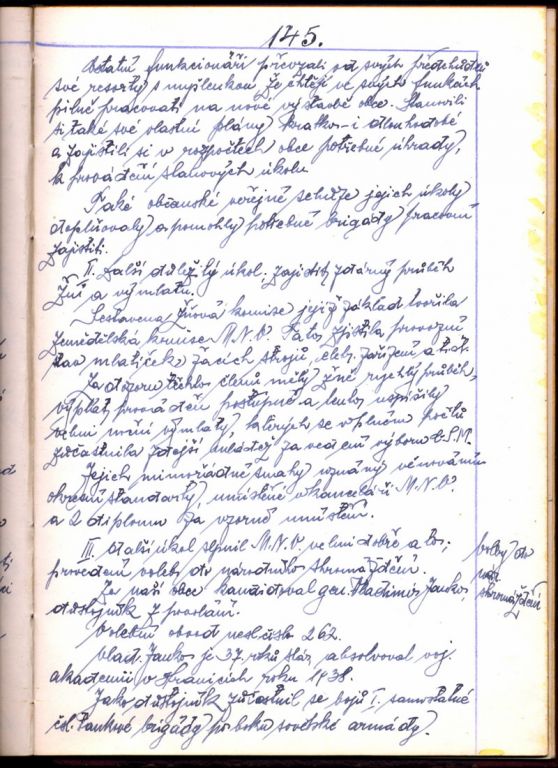 145.
Ostatní funkcionáři převzali od svých předchůdců
své resorty s myšlenkou že chtějí ve svých funkcích
pilně pracovati na nové výstavbě obce. Stanovili
si také své vlastní plány krátko- i dlouhodobé
a zajistili si v rozpočtech obce potřebné úhrady,
k provádění stanových úkolů.
Také občanské veřejné schůze jejich úkoly
doplňovaly a pomohly potřebné brigády pracovní
zajistiti.
II. Další důležitý úkol, zajistit zdárný průběh
žní a výmlatu.
Sestavena žňová komise jejíž základ tvořila
zemědělská komise M.N.V. Tato zjistila provozní
stav mlatiček žacích strojů, elek. zařízení a t.d.
Za dozoru těchto členů měly žně rychlý průběh,
výplat prováděn postupně a tento uspíšily
velmi noční výmlaty, kterých se v plném počtu
zúčastnila zdejší mládež za vedení výboru č.S.M.
Jejich mimořádné snahy uznány věnováním
okresní standarty umístěné v kanceláři M.N.V.
a 2 diplomů za vzorné umístění.
III. Další úkol splnil M.N.V. velmi dobře a to,
provedení voleb do národního shromáždění.
volby do
nár.
shromáždění
Za naši obec kandidoval gen. Vladimír Janko,
důstojník z povolání.
Volební obvod nesl číslo 262.
Vlad. Janko je 37 roků stár, absolvoval voj.
akademii v Hranicích roku 1938.
Jako důstojník zúčastnil se bojů I. samostatné
čsl. tankové brigády po boku sovětské armády.